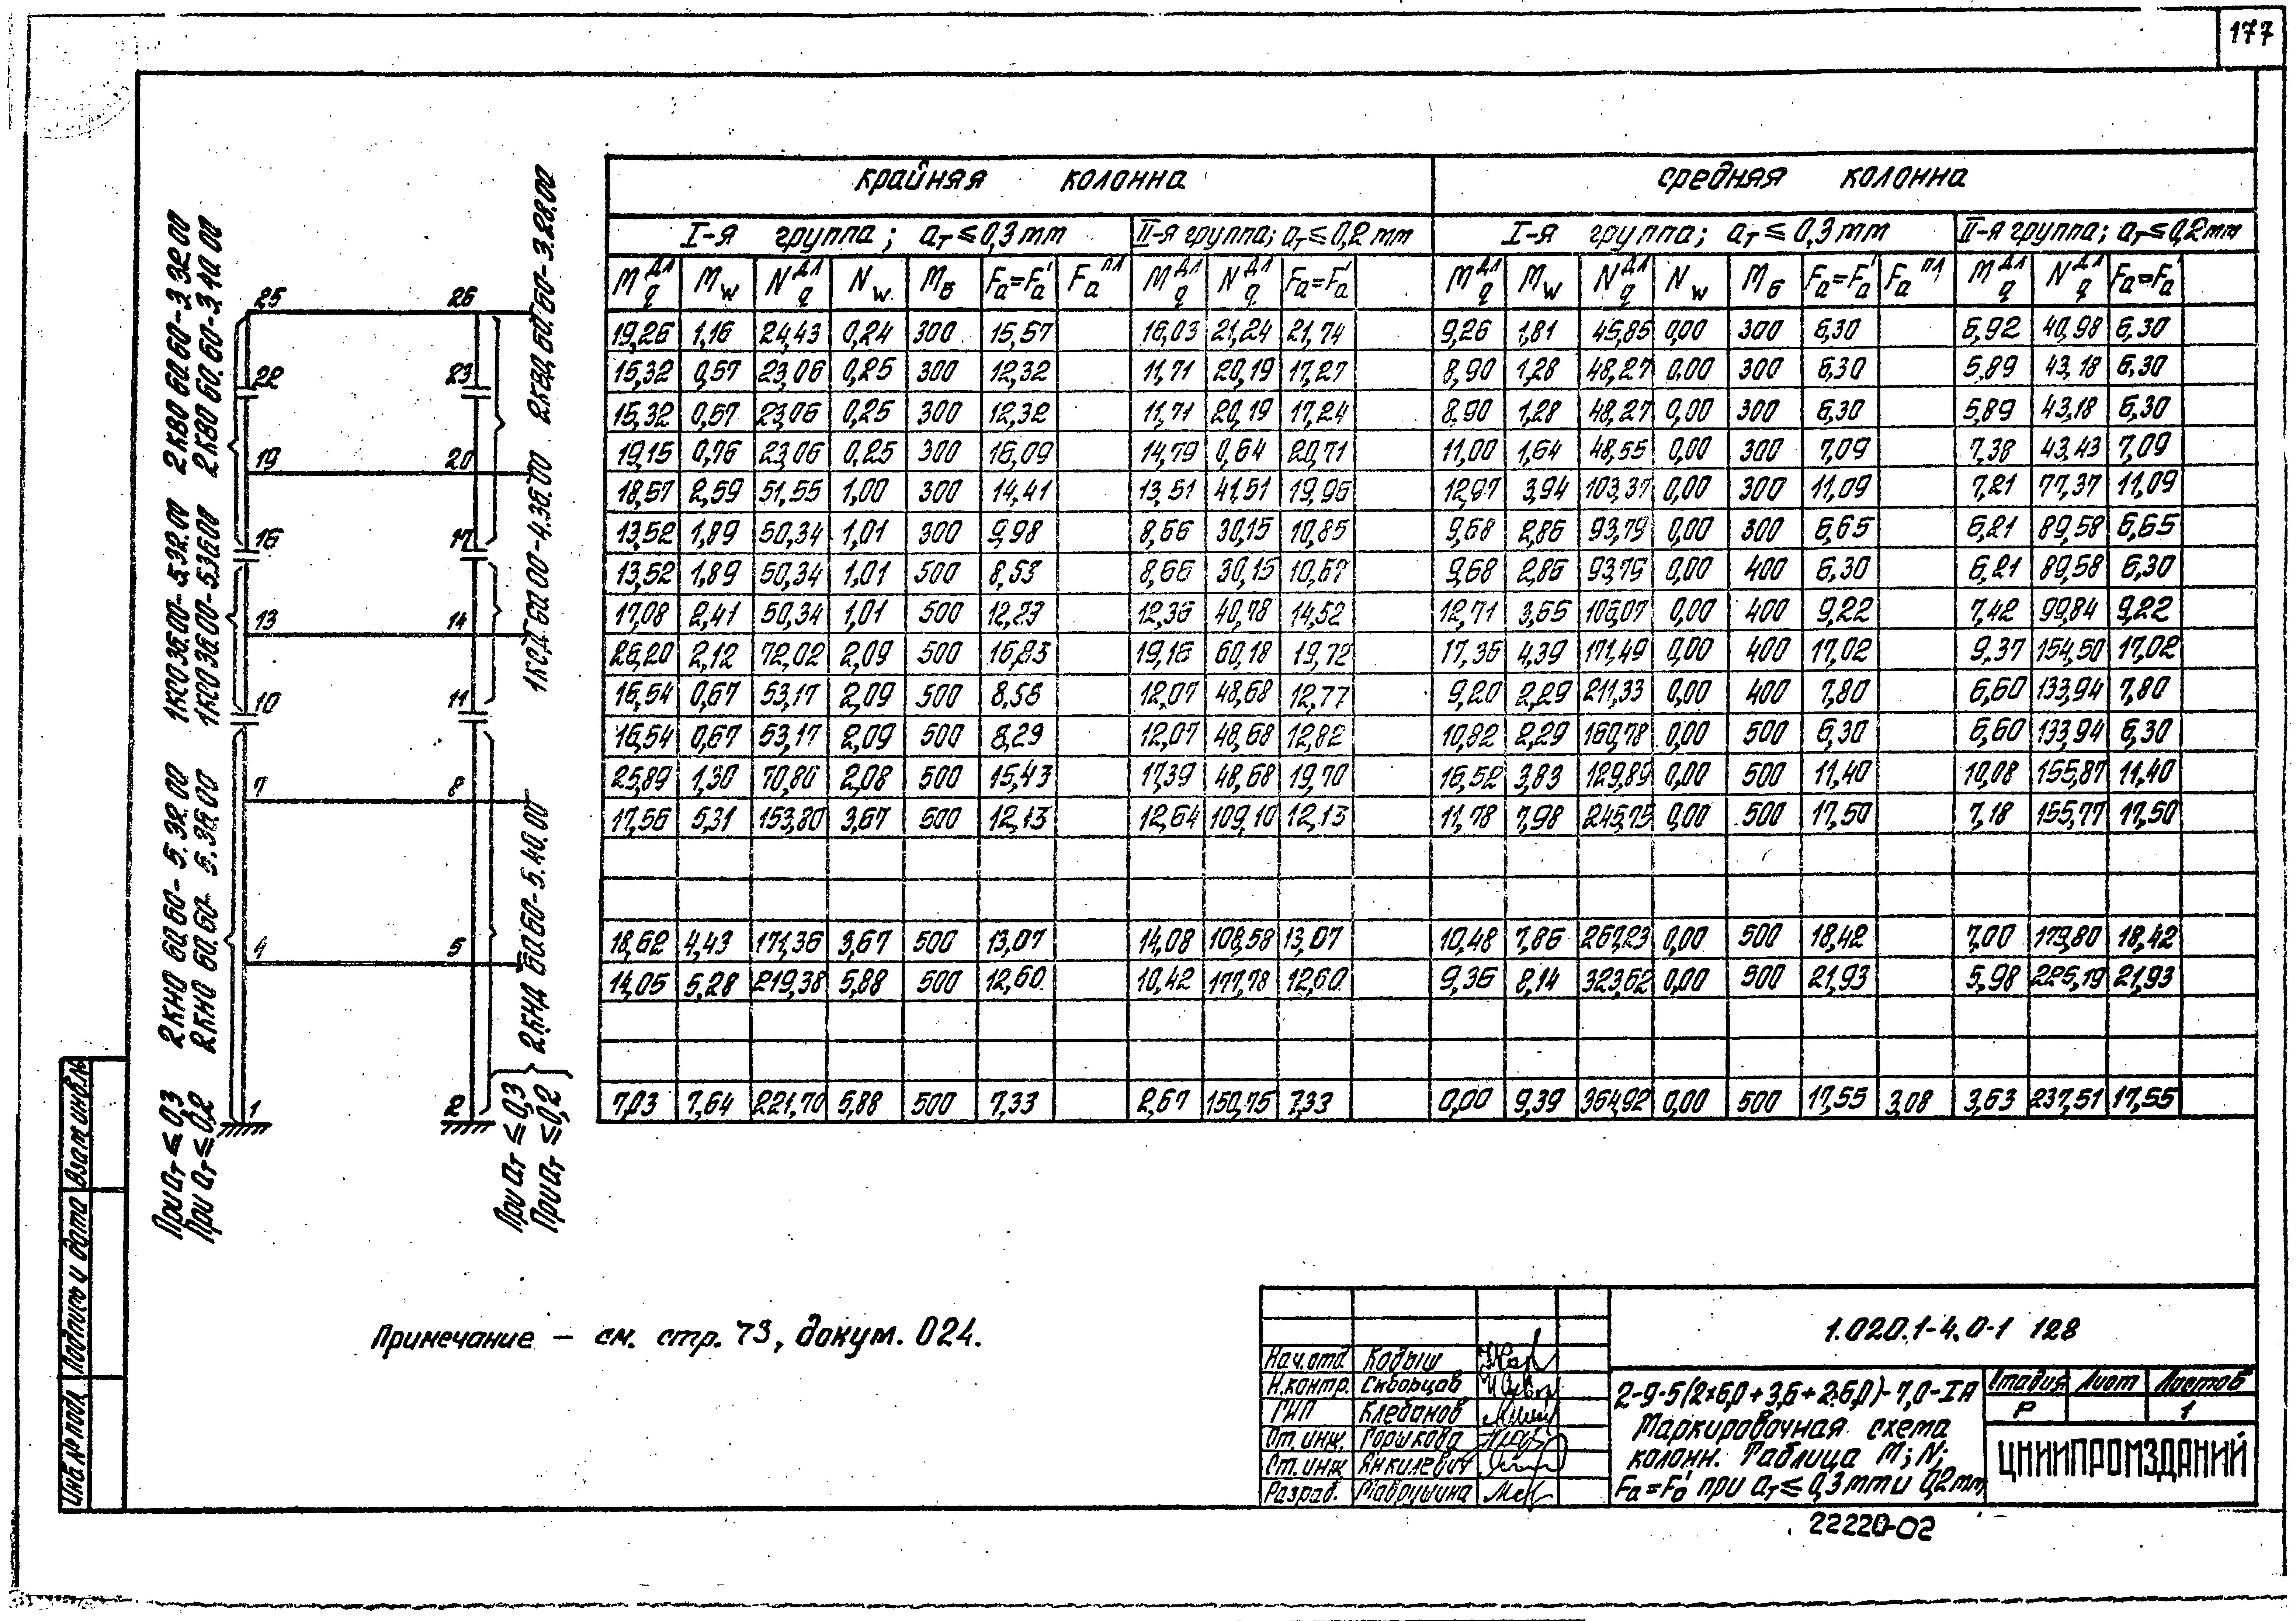 177
крайняя колонна
средняя колонна
I-я группа; aт ≤ 0,3 mm
II-я группа; aт ≤ 0,2 mm
I-я группа; aт ≤ 0,3 mm
II-я группа; aт ≤ 0,2 mm
M q дл | M w | N q дл | N w | M б | Fa=Fa' | Fa пл | M q дл | N q дл | Fa=Fa' | M q дл | M w | N q дл | N w | M б | Fa=Fa' | Fa пл | M q дл | N q дл | Fa=Fa'
19,26 1,16 24,43 0,24 300 15,57 16,03 21,24 21,74 9,26 1,81 45,85 0,00 300 6,30 6,92 40,98 6,30
15,32 0,57 23,06 0,25 300 12,32 11,71 20,19 17,27 8,90 1,28 48,27 0,00 300 6,30 5,89 43,18 6,30
15,32 0,57 23,06 0,25 300 12,32 11,71 20,19 17,24 8,90 1,28 48,27 0,00 300 6,30 5,89 43,18 6,30
19,15 0,76 23,06 0,25 300 16,09 14,79 0,64 20,71 11,00 1,64 48,55 0,00 300 7,09 7,38 43,43 7,09
18,57 2,59 51,55 1,00 300 14,41 13,51 41,51 19,96 12,97 3,94 103,37 0,00 300 11,09 7,21 77,37 11,09
13,52 1,89 50,34 1,01 300 9,98 8,66 30,15 10,85 9,68 2,86 93,79 0,00 300 6,65 6,21 89,58 6,65
13,52 1,89 50,34 1,01 500 8,53 8,66 30,15 10,67 9,68 2,86 93,79 0,00 400 6,30 6,21 89,58 6,30
17,08 2,41 50,34 1,01 500 12,23 12,36 40,78 14,52 12,71 3,65 106,07 0,00 400 9,22 7,42 99,84 9,22
26,20 2,12 72,02 2,09 500 16,83 19,16 60,18 19,72 17,36 4,39 171,49 0,00 400 17,02 9,37 154,50 17,02
16,54 0,67 53,17 2,09 500 8,56 12,07 48,68 12,77 9,20 2,29 211,33 0,00 400 7,80 6,60 133,94 7,80
16,54 0,67 53,17 2,09 500 8,29 12,07 48,68 12,82 10,82 2,29 160,78 0,00 500 6,30 6,60 133,94 6,30
25,89 1,30 70,86 2,08 500 15,43 17,39 48,68 19,70 16,52 3,83 129,89 0,00 500 11,40 10,08 155,87 11,40
17,56 5,31 153,80 3,67 500 12,13 12,64 109,10 12,13 11,78 7,98 245,75 0,00 500 17,50 7,18 155,77 17,50
18,62 4,43 171,36 3,67 500 13,07 14,08 108,58 13,07 10,48 7,86 267,23 0,00 500 18,42 7,00 179,80 18,42
14,05 5,28 219,38 5,88 500 12,60 10,42 177,78 12,60 9,36 8,14 323,62 0,00 500 21,93 5,98 226,19 21,93
7,03 7,64 221,70 5,88 500 7,33 2,67 150,75 7,33 0,00 9,39 364,92 0,00 500 17,55 3,08 3,63 237,51 17,55
25 26
22 23
19 20
16 17
13 14
10 11
7 8
4 5
1 2
При aт ≤ 0,3 2КНО 60.60-5.32.00 1КСО 36.00-5.32.00 2КВО 60.60-3.32.00
При aт ≤ 0,2 2КНО 60.60-5.36.00 1КСО 36.00-5.36.00 2КВО 60.60-3.40.00
При aт ≤ 0,3
При aт ≤ 0,2
2КНД 60.60-5.40.00 1КСД 60.00-4.36.00 2КВД 60.60-3.28.00
Инв.№ подл. Подпись и дата Взам.инв.№
Примечание – см. стр. 73, докум. 024.
1.020.1-4.0-1 128
Нач.отд Кодыш
Н.контр. Скворцов
ГИП Клеванов
Ст.инж. Горшкова
Ст.инж Янкилевич
Разраб. Маврушина
2-9-5(2×6,0+3,6+2×6,0)-7,0-IA
Маркировочная схема
колонн. Таблица M; N;
Fa=Fa' при aт ≤ 0,3 mm и 0,2 mm
Стадия Лист Листов
Р 1
ЦНИИПРОМЗДАНИЙ
22220-02